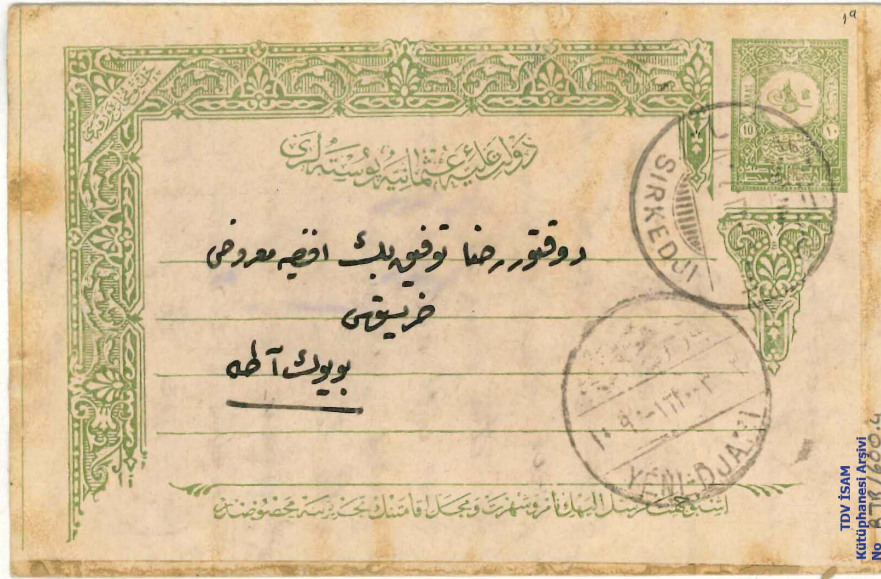 ١٩
دولت علیهٔ عثمانیه پوسته لری
10 ١٠
SIRKEDJI
دوقتور رضا توفیق بك افندیه معروضی
خریستوس
بویوك آطه
YENI-DJAMI
اشبو جهت مرسل الیهك نام و شهرت و محل اقامتنك تحریرینه مخصوصدر
TDV İSAM
Kütüphanesi Arşivi
No RTR/600.4